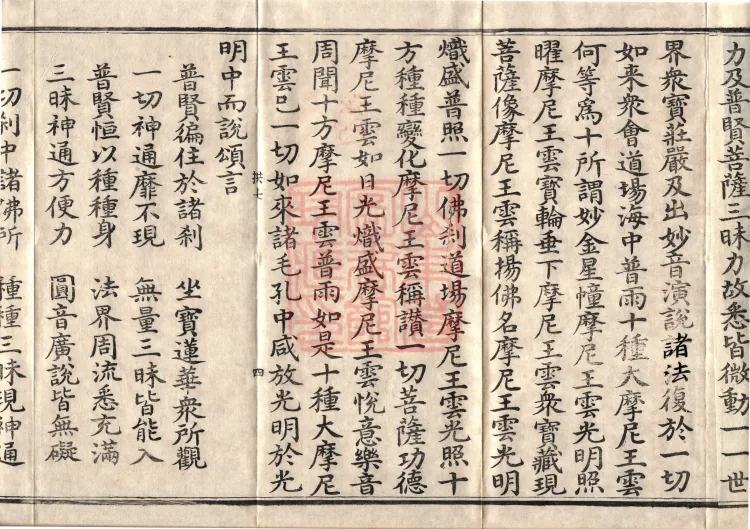 力及普賢菩薩三昧力故悉皆微動一一世
界衆寶莊嚴及出妙音演說諸法復於一切
如來衆會道場海中普雨十種大摩尼王雲
何等爲十所謂妙金星幢摩尼王雲光明照
曜摩尼王雲寶輪垂下摩尼王雲衆寶藏現
菩薩像摩尼王雲稱揚佛名摩尼王雲光明
熾盛普照一切佛刹道場摩尼王雲光照十
方種種變化摩尼王雲稱讚一切菩薩功德
摩尼王雲如日光熾盛摩尼王雲悅意樂音
周聞十方摩尼王雲普雨如是十種大摩尼
王雲已一切如來諸毛孔中咸放光明於光
拱七 四
明中而說頌言
普賢徧住於諸刹 坐寶蓮華衆所觀
一切神通靡不現 無量三昧皆能入
普賢恒以種種身 法界周流悉充滿
三昧神通方便力 圓音廣說皆無礙
一切刹中諸佛所 種種三昧現神通